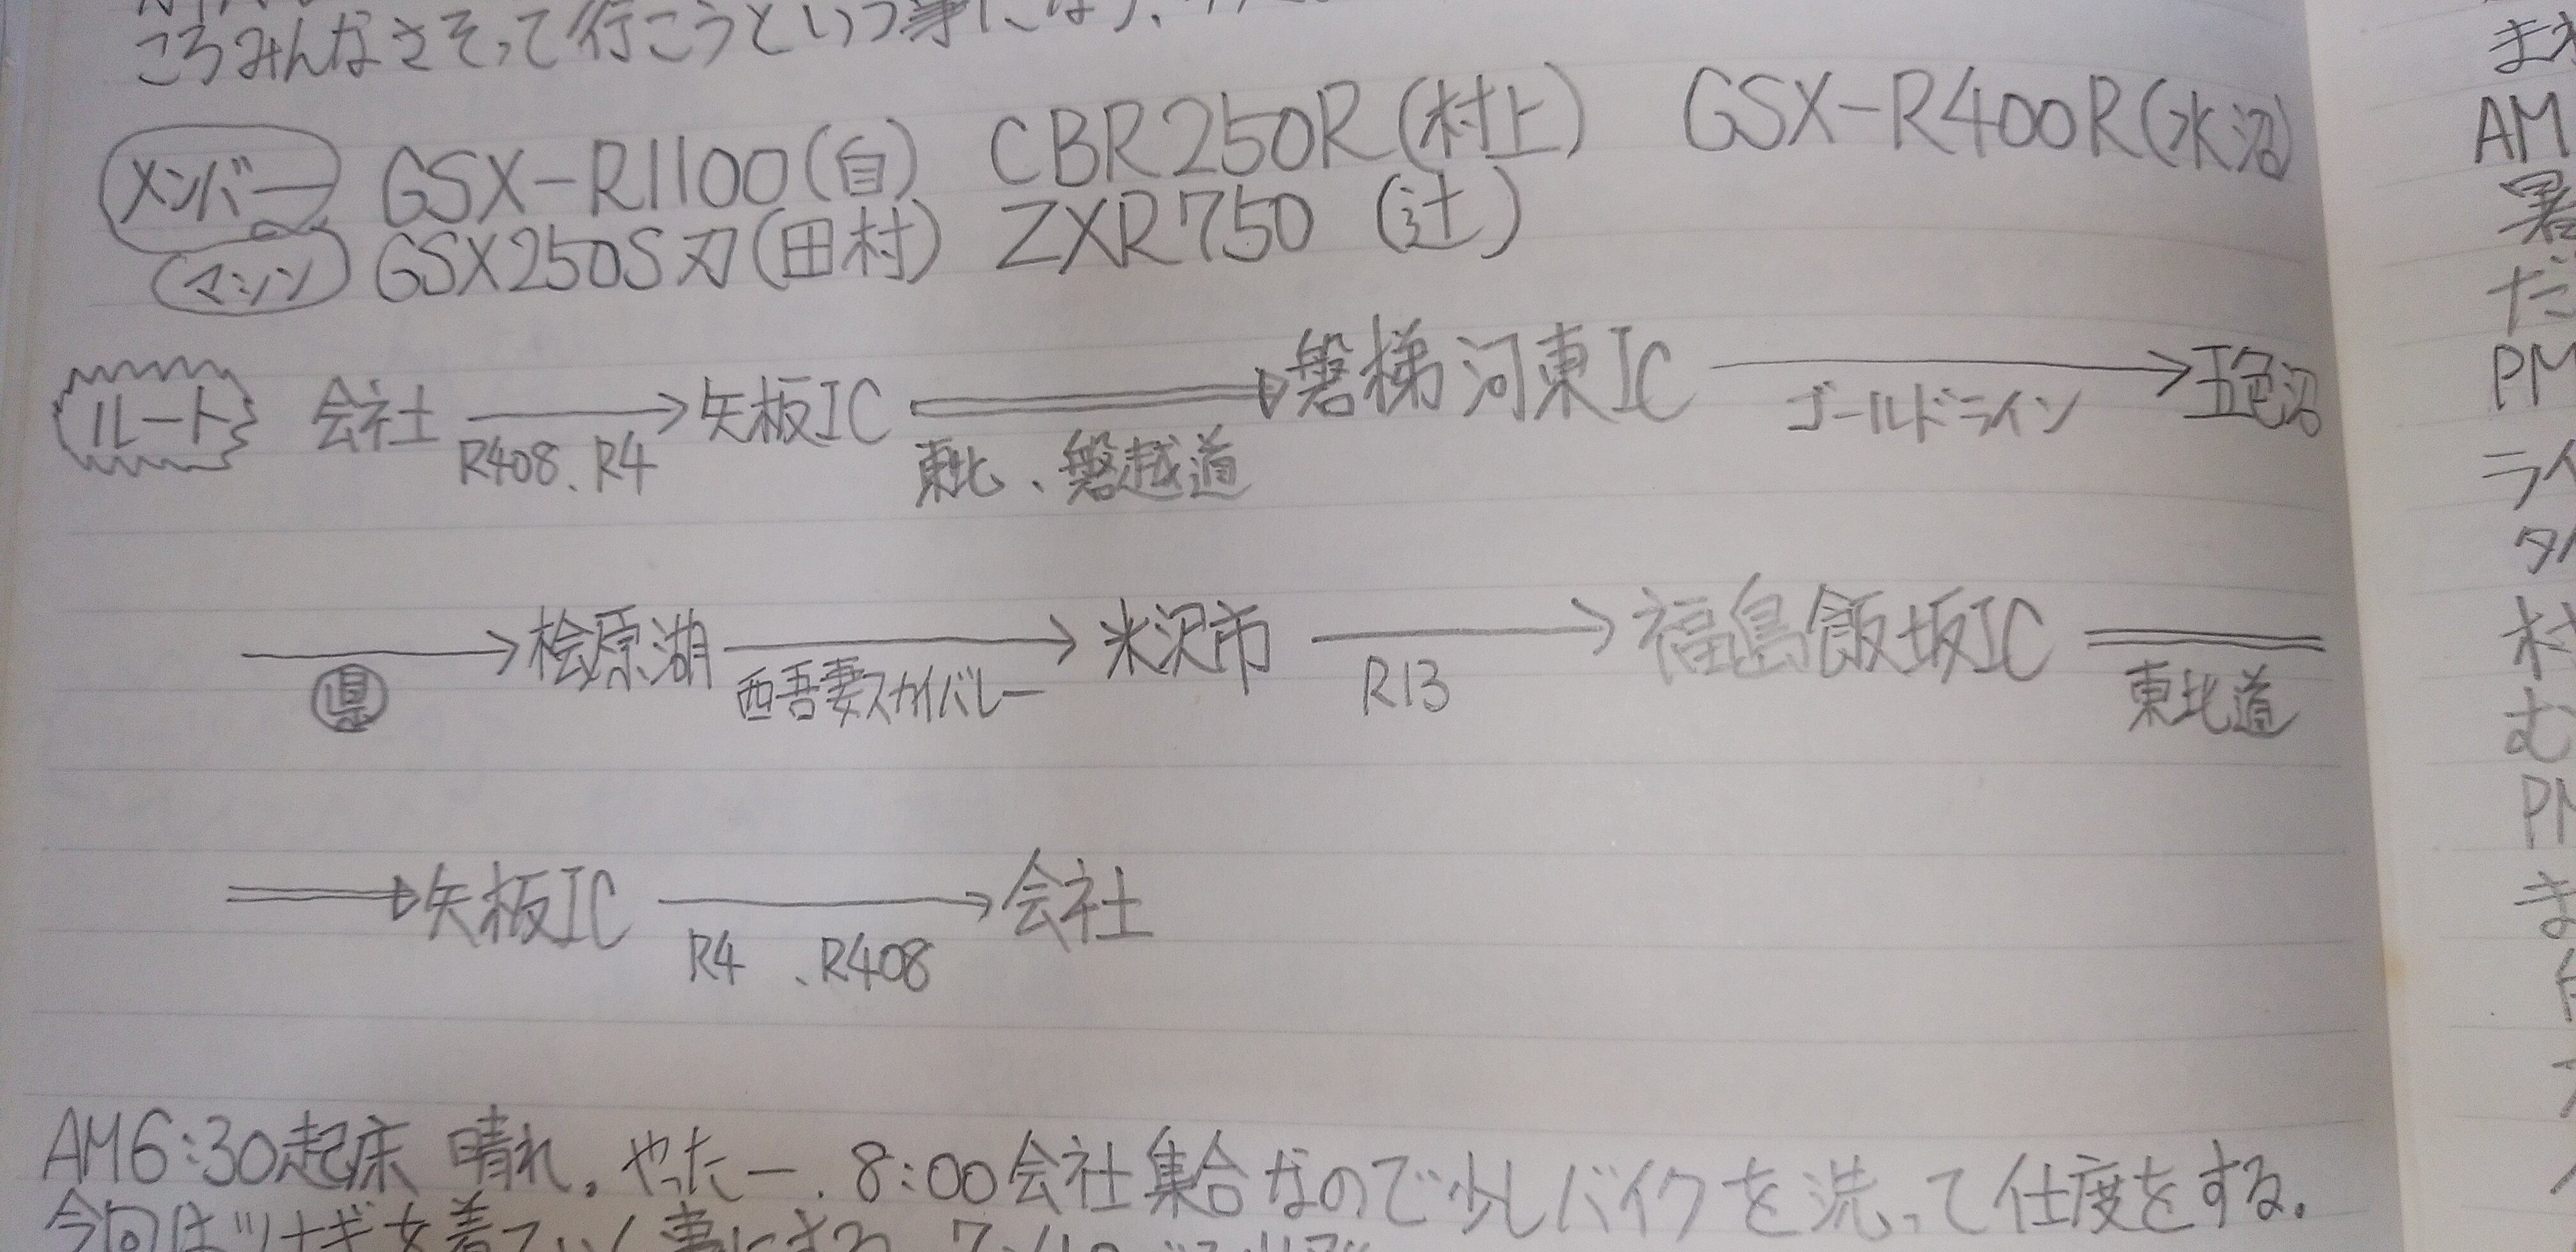 ころみんなさそって行こうという事になり、
メンバー GSX-R1100(自) CBR250R(村上) GSX-R400R(水沼)
マシン GSX250S刀(田村) ZXR750 (辻)
ルート 会社 → 矢板IC ⇒ 磐梯河東IC → 五色沼
R408、R4 東北、磐越道 ゴールドライン
→ 桧原湖 → 米沢市 → 福島飯坂IC
県 西吾妻スカイバレー R13 東北道
⇒ 矢板IC → 会社
R4 、R408
AM6:30起床 晴れ。やったー。8:00会社集合なので少しバイクを洗って仕度をする。
今回はツナギを着ていく事にする
ま
AM
暑
だ
PM
ライ
タ
村
む
PM
ま